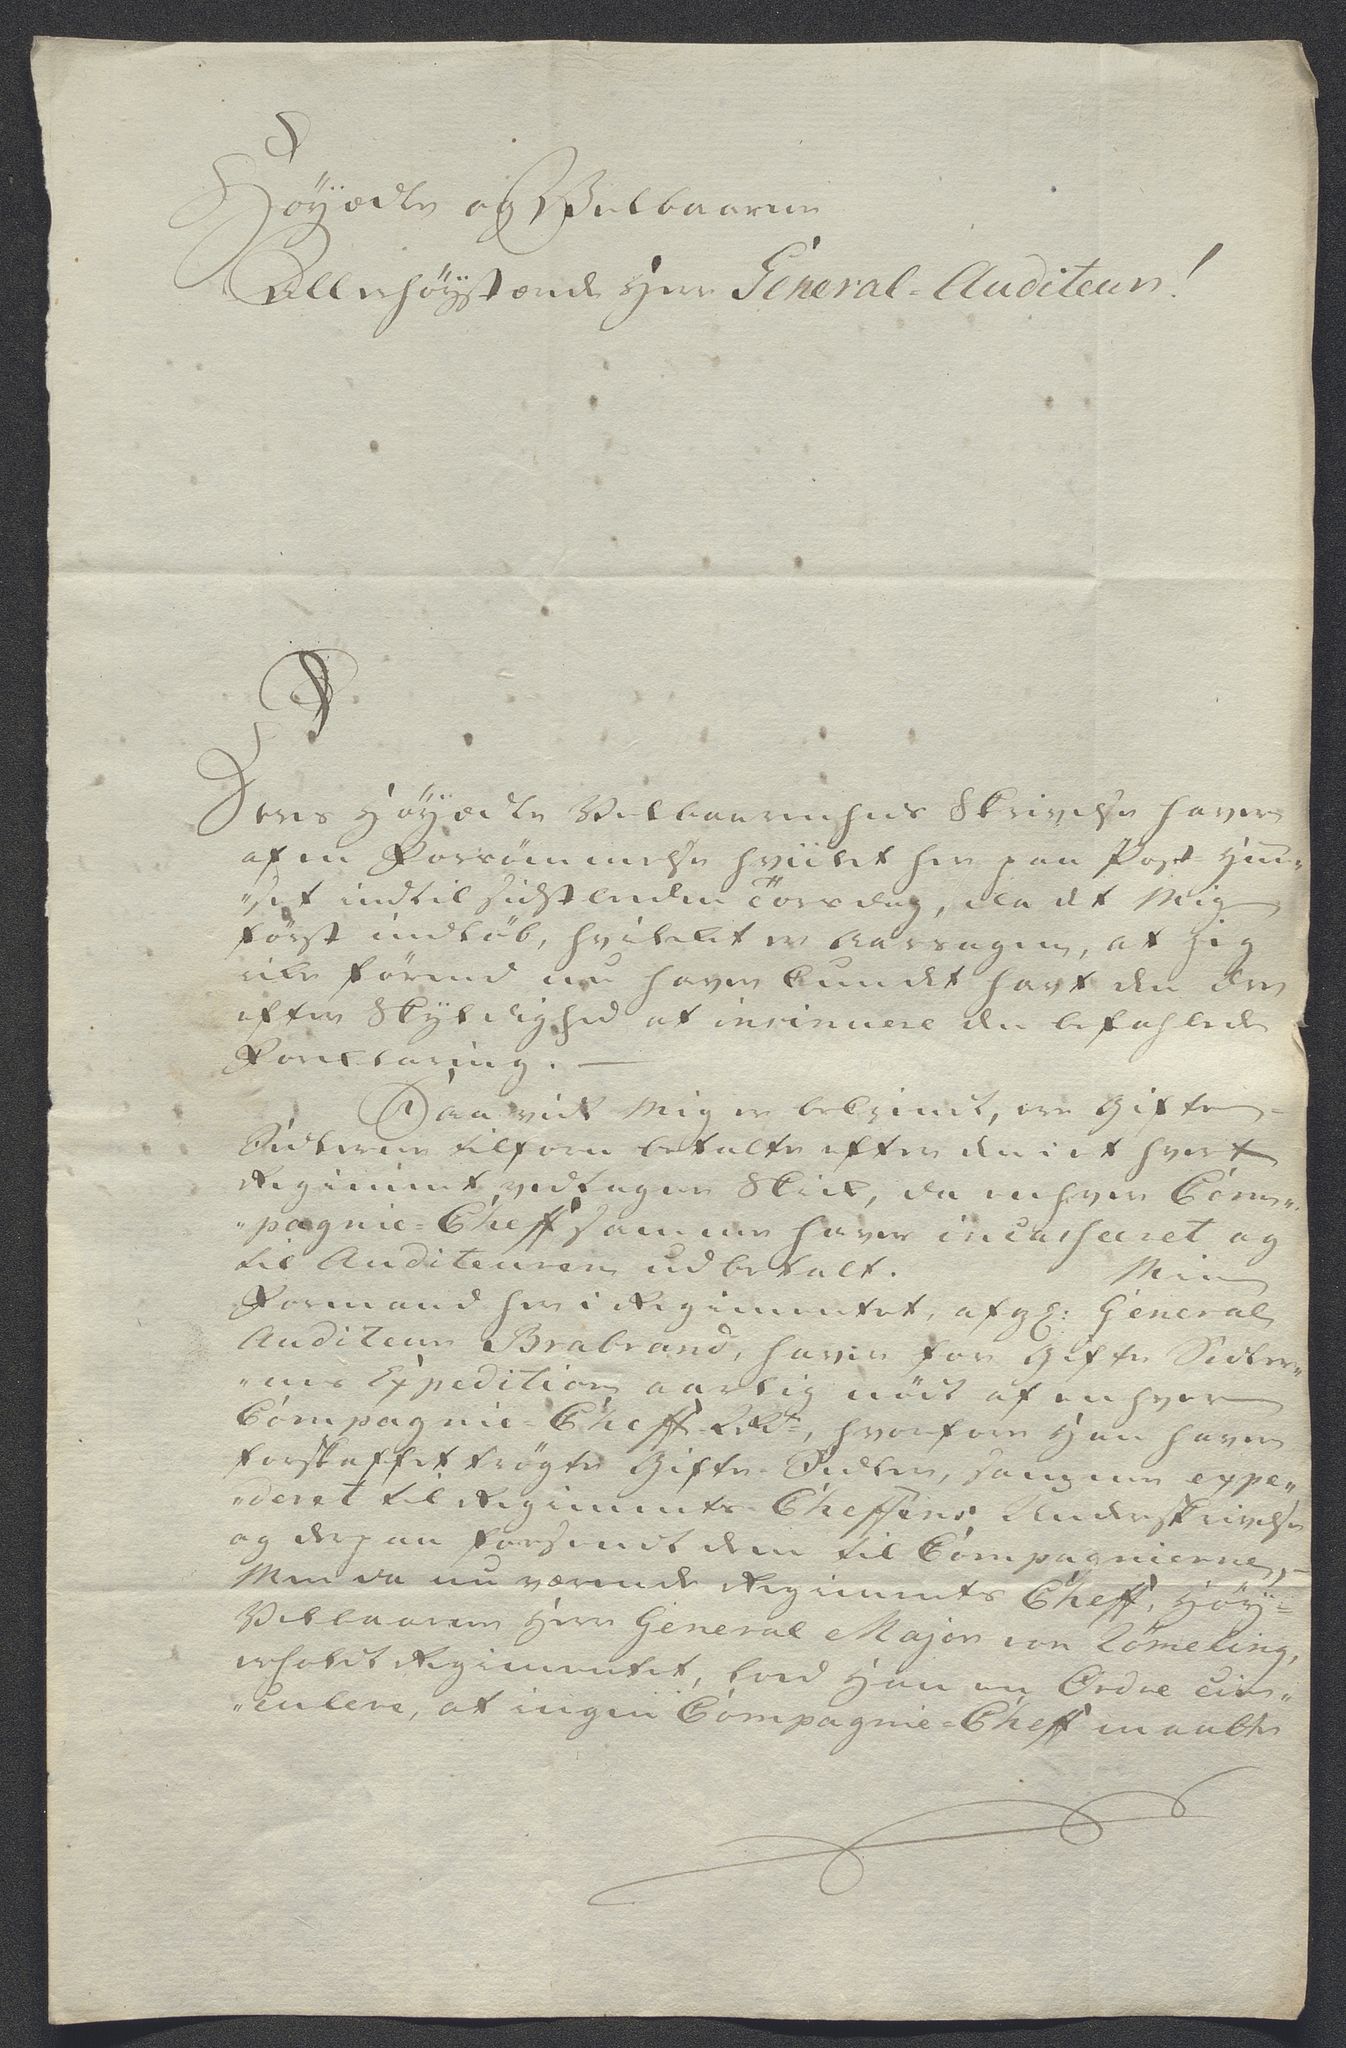 Høÿædle og Velbaarne
Allerhøystærede Herr General-Auditeur!
Deres Høÿædle Velbaarenheds Skrivelse haver
af en Forsømmelse hviilet her paa Post-Huu„
„set indtil sidstleeden Torsdag, da det Mig
først indløb, hvilket er Aarsagen, at Jeg
icke førend nu haver kundet havt den Ære
efter Skÿldighed at insinuere den befahlede
Forklaring. —
Saa vidt Mig er bekiendt, ere Gifte-
Sedlerne tilforn betalte efter den i et hvert
Regiment vedtagne Skick, da enhver Com„
„pagnie-Cheff samme haver incasseeret og
til Auditeuren udbetalt. Min
Formand her i Regimentet, afg: General
Auditeur Brabrand, haver for Gifte Sedler„
„nes Expedition aarlig nødt af enhver
Compagnie-Cheff 2 Rd, hvorfore Han haver
forskaffet trøgte Gifte-Sedler, samme expe„
„deret til Regiments-Cheffens Underskrivelse
og derpaa forsendt dem til Compagnierne,
Men da nu værende Regiments Cheff, Høÿ-
Velbaarne Herr General Major von Römeling,
erholdt Regimentet, lod Han en Ordre cir„
„culere, at ingen Compagnie-Cheff maatte